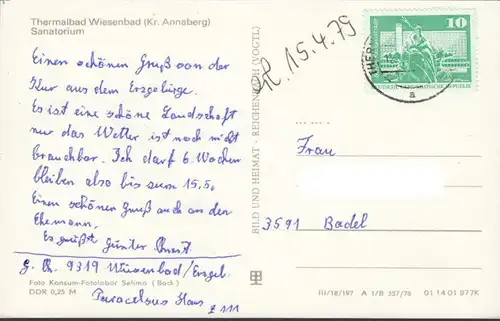 Thermalbad Wiesenbad (Kr. Annaberg)
Sanatorium
Einen schönen Gruß von der
Kur aus dem Erzgebirge.
Es ist eine schöne Landschaft
nur das Wetter ist noch nicht
brauchbar. Ich darf 6 Wochen
bleiben also bis zum 15.5.
Einen schönen Gruß auch an den
Ehemann.
Es grüßt Günter
9319 Wiesenbad/Erzgeb.
Paracelsus Haus Z 111
Foto Konsum-Fotolabor Selimo (Bach)
DDR 0,25 M
BILD UND HEIMAT - REICHENBACH (VOGTL)
15.4.79
10
DEUTSCHE DEMOKRATISCHE REPUBLIK
THER
a
Frau
3591 Badel
III/18/197 A 1/B 357/78 01 14 01 077K